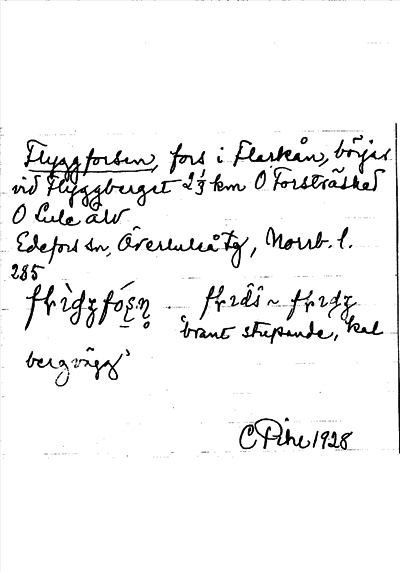 Flyggforsen, fors i Flarkån, börjar
vid Flyggberget 2⅓ km O Forsträsket
O Lule älv
Edefors sn, Överluleå tg, Norrb. l.
285
'brant stupande, kal
bergvägg'
C Pihl 1928